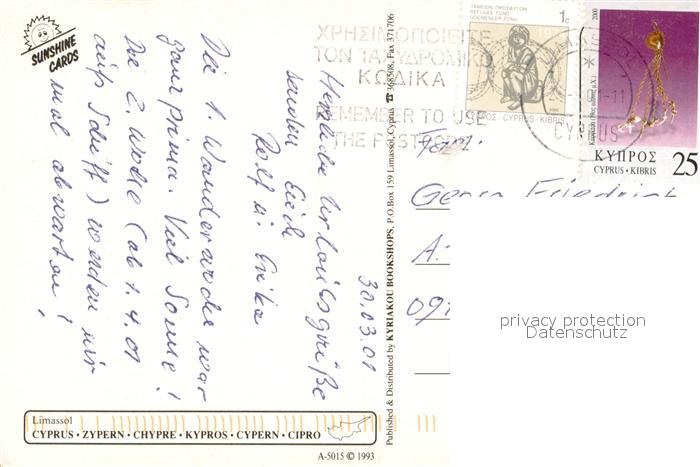 SUNSHINE
CARDS
30.03.01
Herzliche Urlaubsgrüße
senden Euch
Rolf u. Erika
Die 1. Wanderwoche war
ganz prima. Viel Sonne!
Die 2. Woche (ab 1.4.01
aufs Schiff) werden wir
mal abwarten!
Limassol
CYPRUS • ZYPERN • CHYPRE • KYPROS • CYPERN • CIPRO
A-5015 © 1993
Published & Distributed by KYRIAKOU BOOKSHOPS, P.O.Box 159 Limassol, Cyprus ☎ 368508, Fax 371706
ΧΡΗΣΙΜΟΠΟΙΕΙΤΕ
ΤΟΝ ΤΑΧΥΔΡΟΜΙΚΟ
ΚΩΔΙΚΑ
REMEMBER TO USE
THE POST
CYPRUS
ΤΑΜΕΙΟΝ ΠΡΟΣΦΥΓΩΝ
REFUGEE FUND
GÖÇMENLER FONU
1c
ΚΥΠΡΟΣ • CYPRUS • KIBRIS
2000
ΚΥΠΡΟΣ
CYPRUS • KIBRIS
25
Fam.
Georg Friedrich
A
09
privacy protection
Datenschutz